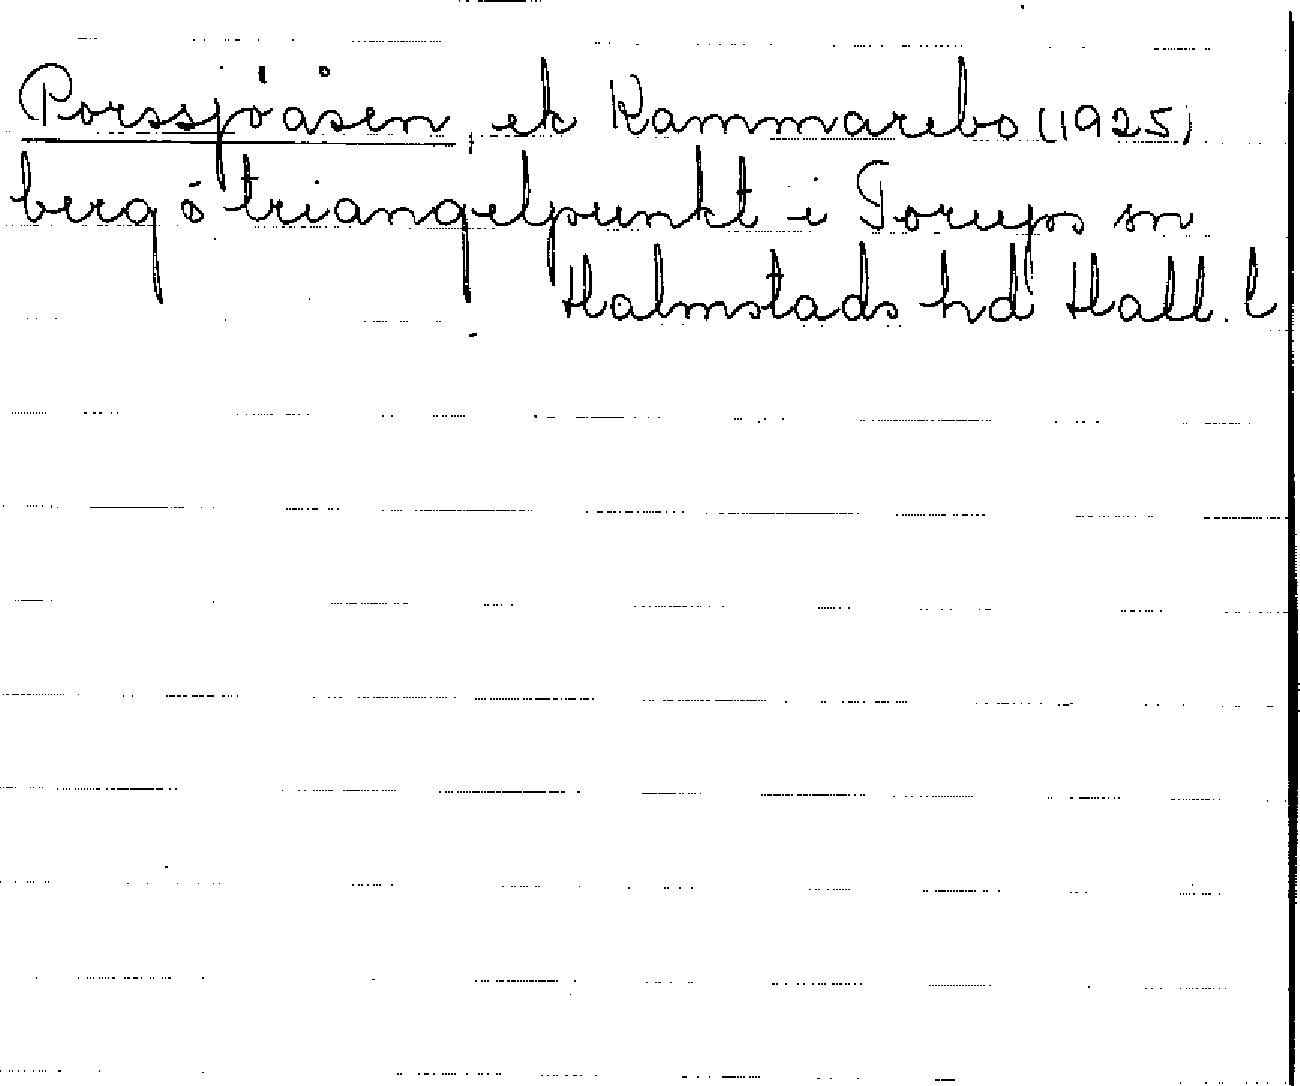 Porssjöåsen, ek Kammarebo (1925)
berg ö triangelpunkt i Torups sn
Halmstads hd Hall. l